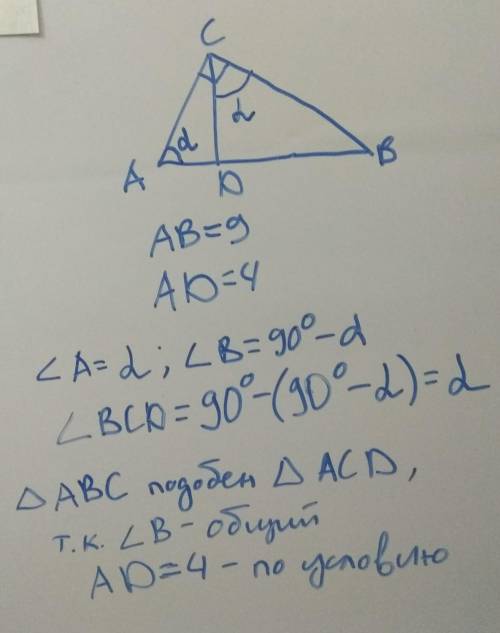 C
α
α
A
D
B
AB=9
AD=4
∠A=α; ∠B=90°-α
∠BCD=90°-(90°-α)=α
△ABC подобен △ACD,
т.к. ∠B - общий
AD=4 - по условию